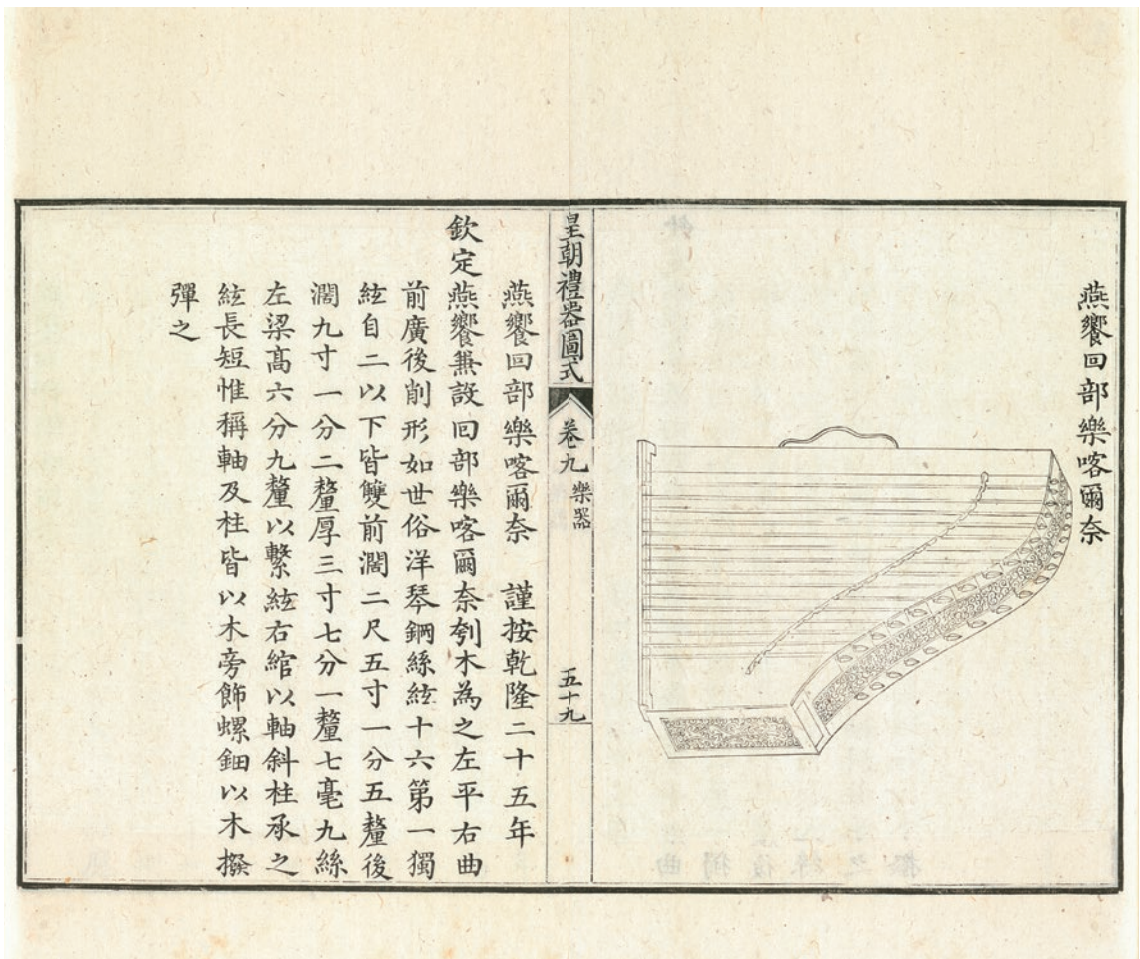 燕饗回部樂喀爾奈
皇朝禮器圖式
卷九 樂器
五十九
燕饗回部樂喀爾奈 謹按乾隆二十五年
欽定燕饗兼設回部樂喀爾奈刳木為之左平右曲
前廣後削形如世俗洋琴鋼絲絃十六第一獨
絃自二以下皆雙前濶二尺五寸一分五釐後
濶九寸一分二釐厚三寸七分一釐七毫九絲
左梁高六分九釐以繫絃右綰以軸斜柱承之
絃長短惟稱軸及柱皆以木旁飾螺鈿以木撥
彈之